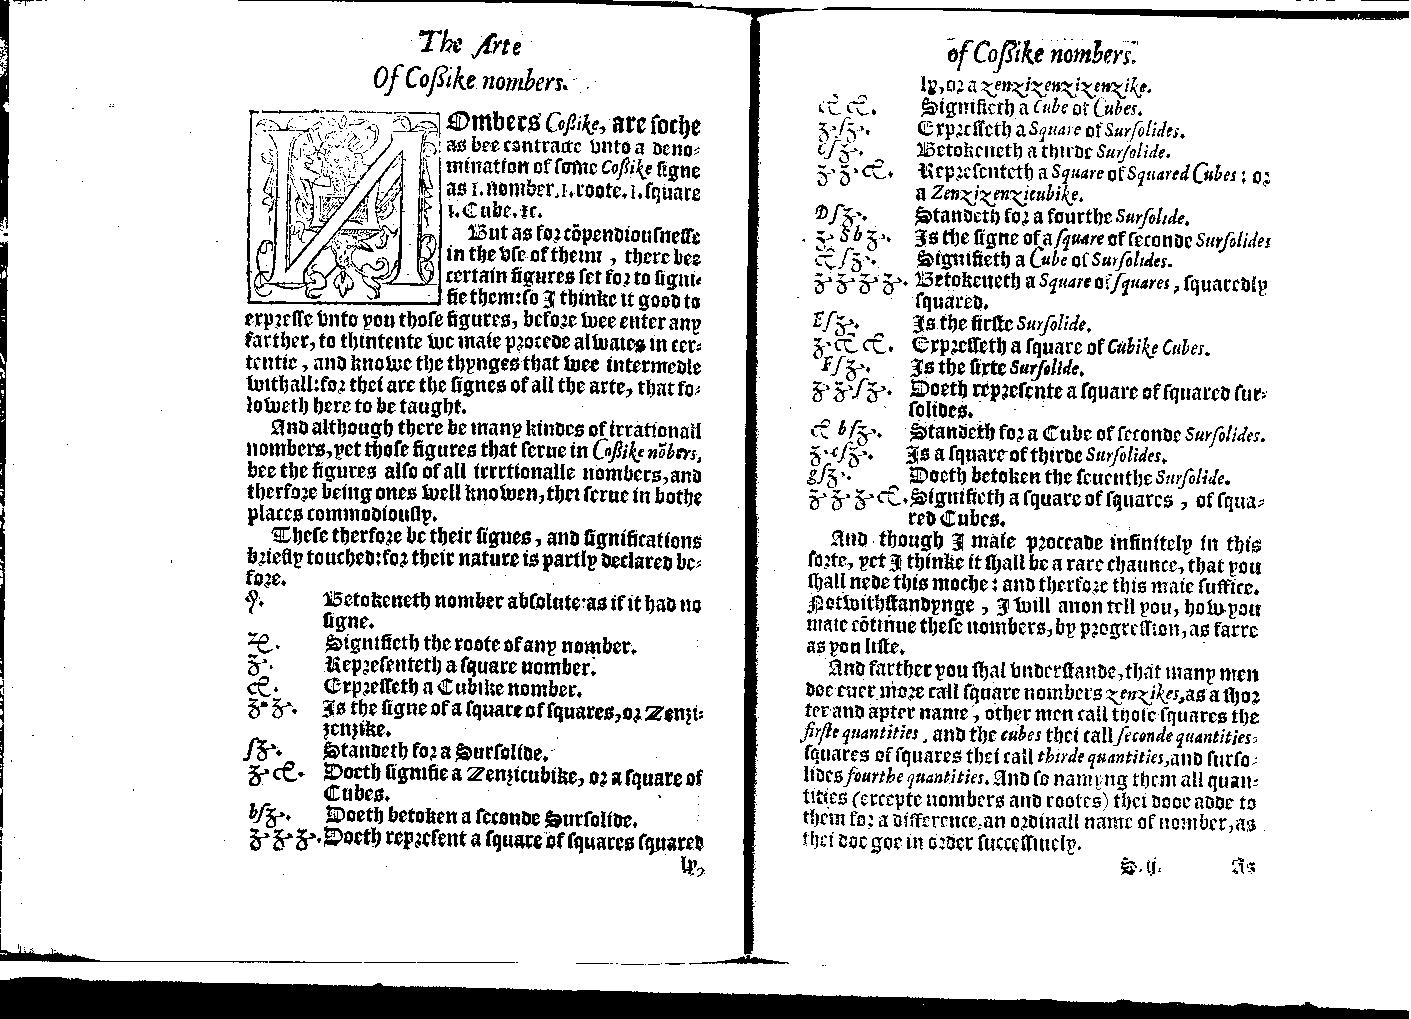 The Arte
Of Coßike nombers.
NOmbers Coßike, are soche
as bee contracte vnto a deno-
mination of some Coßike signe
as 1. nomber. 1. roote. 1. square
1. Cube. ⁊c.
But as for cõpendiousnesse
in the vse of theim, there bee
certain figures set for to signi-
fie them: so I thinke it good to
expresse vnto you those figures, before wee enter any
farther, to thintente we maie procede alwaies in cer-
tentie, and knowe the thynges that wee intermedle
withall: for thei are the signes of all the arte, that fo-
loweth here to be taught.
And although there be many kindes of irrationall
nombers, yet those figures that serue in Coßike nõbers,
bee the figures also of all irrrtionalle nombers, and
therfore being ones well knowen, thei serue in bothe
places commodiously.
These therfore be their signes, and significations
briefly touched: for their nature is partly declared be-
fore.
Betokeneth nomber absolute: as if it had no
signe.
Signifieth the roote of any nomber.
Representeth a square nomber.
Expresseth a Cubike nomber.
ʒ.ʒ. Is the signe of a square of squares, or Zenzi-
zenzike.
ſʒ. Standeth for a Sursolide.
Doeth signifie a Zenzicubike, or a square of
Cubes.
bſʒ. Doeth betoken a seconde Sursolide.
ʒ.ʒ.ʒ. Doeth represent a square of squares squared
ly,
of Coßike nombers.
ly, or a zenzizenzizenzike.
Signifieth a Cube of Cubes.
ʒ.ſʒ. Expresseth a Square of Sursolides.
cſʒ. Betokeneth a thirde Sursolide.
Representeth a Square of Squared Cubes: or
a Zenzizenzicubike.
Dſʒ. Standeth for a fourthe Sursolide.
ʒ.bʒ. Is the signe of a square of seconde Sursolides
Signifieth a Cube of Sursolides.
ʒ.ʒ.ʒ.ʒ. Betokeneth a Square of squares, squaredly
squared.
Eſʒ. Is the firste Sursolide.
Expresseth a square of Cubike Cubes.
Fſʒ. Is the sixte Sursolide.
ʒ.ʒ.ſʒ. Doeth represente a square of squared sur-
solides.
Standeth for a Cube of seconde Sursolides.
Is a square of thirde Sursolides.
gſʒ. Doeth betoken the seuenthe Sursolide.
Signifieth a square of squares, of squa-
red Cubes.
And though I maie proceade infinitely in this
sorte, yet I thinke it shall be a rare chaunce, that you
shall nede this moche: and therfore this maie suffice.
Notwithstandynge, I will anon tell you, how you
maie cõtinue these nombers, by progression, as farre
as you liste.
And farther you shal vnderstande, that many men
doe euer more call square nombers zenzikes, as a shor
ter and apter name, other men call those squares the
firste quantities, and the cubes thei call seconde quantities,
squares of squares thei call thirde quantities, and surso-
lides fourthe quantities. And so namyng them all quan-
tities (excepte nombers and rootes) thei dooe adde to
them for a difference, an ordinall name of nomber, as
thei doe goe in order successiuely.
S.ij. As